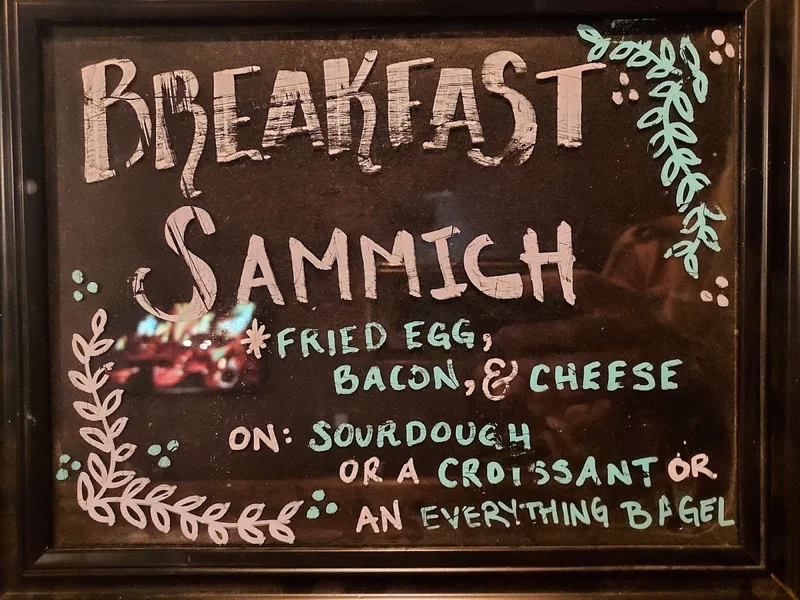 BREAKFAST
SAMMICH
*FRIED EGG,
BACON, & CHEESE
ON: SOURDOUGH
OR A CROISSANT OR
AN EVERYTHING BAGEL